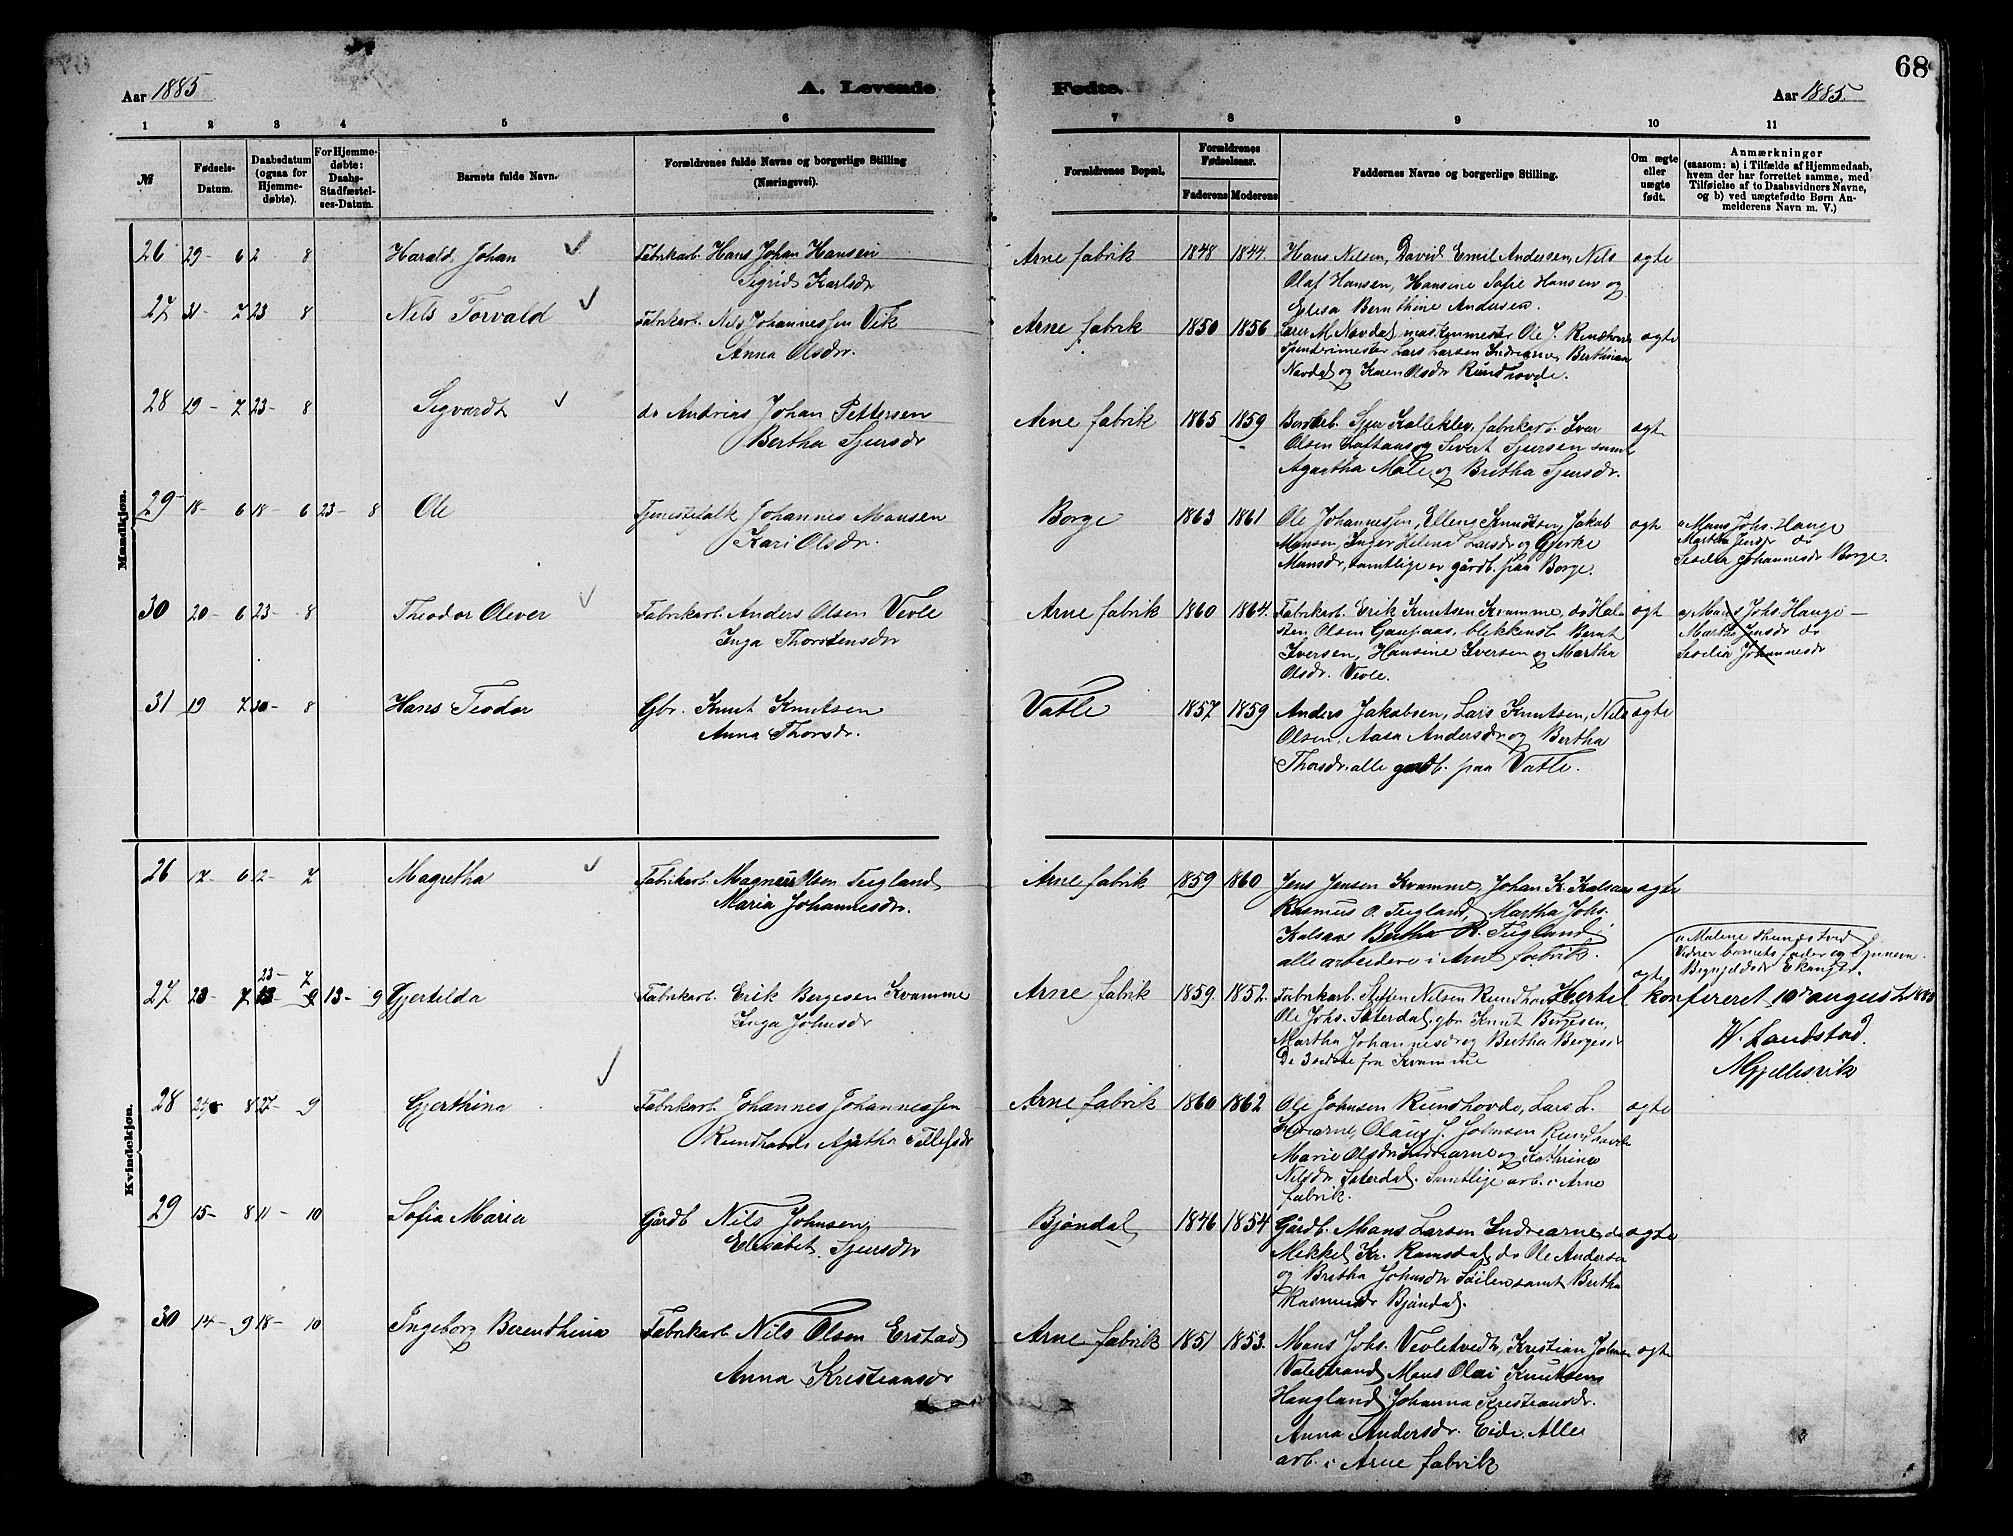 68
Aar 1885
A. Levende
Fødte.
Aar 1885.
1 2 3 4 5 6
7 8 9 10 11
№
Fødsels-
Datum.
Daabsdatum
(ogsaa for
Hjemme-
døbte).
For Hjemme-
døbte:
Daabs-
Stadfæstel-
ses-Datum.
Barnets fulde Navn.
Forældrenes fulde Navne og borgerlige Stilling
(Næringsvei).
Forældrenes Bopæl.
Forældrenes
Fødselsaar.
Faderens Moderens
Faddernes Navne og borgerlige Stilling.
Om ægte
eller
uægte
født.
Anmærkninger
(saasom: a) i Tilfælde af Hjemmedaab,
hvem der har forrettet samme, med
Tilføielse af to Daabsvidners Navne,
og b) ved uægtefødte Børn An-
melderens Navn m. V.)
Mandkjøn.
26 29 6 2 8 Harald Johan
Fabrikarb. Hans Johan Hansen
Sigrid Karlsdr
Arne fabrik 1848 1844
Hans Nilsen, David Emil Andersen, Nils
Olaf Hansen, Hansine Sofie Hansen og
Bernthine Andersen.
ægte
27 31 7 23 8 Nils Torvald
Fabrikarb. Nils Johannessen Vik
Anna Olsdr.
Arne fabrik 1850 1856
Lærer M. Navdal, maskinmester Ole J.
Spinderimester Lars Larsen Indrearne, Berthine
Navdal og Karen Olsdr Rundhovde.
ægte
28 19 - 7 23 - 8 Sigvardt
do Andrias Johan Pettersen
Bertha Sjursdr
Arne fabrik 1865 1859
Sjur Kalleklev, fabrikarb. Ivar
Olsen og Sivert Sjursen samt
Agartha Male og Britha Sjursdr.
ægte
29 18 - 6 18 - 6 23 - 8 Ole
Tjenestefolk Johannes Monsen
Kari Olsdr.
Borge 1863 1861
Ole Johannessen, Elling Knudsen, Jakob
Monsen, Inger Helena Larsdr og Gjerke
Monsdr, samtlige er gårdb. paa Borge.
ægte
a Mons Johs. Hauge
Martha Jensdr do
Seselia Johannesdr Borge.
30 20 - 6 23 - 8 Theodor Olever
Fabrikarb. Anders Olsen Vevle
Inga Thorstensdr
Arne fabrik 1860 1864.
Fabrikarb. Erik Knutsen Kvamme, do Hal-
sten Olsen Gaupaas, blikkensl. Bernt
Iversen, Hansine Iversen og Martha
Olsdr. Vevle.
ægte
a) Mons Johs Hauge
Martha Jensdr do
Seselia Johannesdr
31 19 7 30 - 8 Hans Teodor
Gbr. Knut Knutsen
Anna Thorsdr.
Vatle 1857 1859
Anders Jakobsen, Lars Knutsen, Nils
Olsen, Aasa Andersdr og Bertha
Thorsdr. alle gardb. paa Vatle.
ægte
Kvindekjøn.
26 17 - 6 12 - 7 Magretha
Fabrikarb. Magnus Olsen Tegland
Maria Johannesdr.
Arne fabrik 1859 1860
Jens Jensen Kvamme, Johan K. Kalsaas
Rasmus O. Tegland, Martha Johs.
Kalsaas Bertha R. Tegland
alle arbeidere i Arne fabrik.
ægte
27 23 - 7 23 - 7 13 - 9 13 - 9 Gjertilda
Fabrikarb. Erik Bergesen Kvamme
Inga Johnsdr
Arne fabrik 1859. 1852.
Fabrikarb. Steffen Nilsen
Ole Johs. Saterdal, gbr Knut Bergesen,
Martha Johannesdr og Bertha Bergesdr
De 3 sidste fra Kvamme
ægte
a Malene
Vidner barnets fader og
Ekanger.
Hertil konfereret 10de august 1885
W. Landstad.
Mjellesvik
28 24 8 27 - 9 Gjerthina
Fabrikarb. Johannes Johannessen
Rundhovde Agatha Tellefsdr
Arne fabrik 1860 1862
Ole Johnsen Rundhovde, Lars L.
Indrearne, Olaus J. Johnsen Rundhovde
Marie Olsdr Indrearne og Kathrine
Nilsdr Saterdal. Samtlige arb. i Arne
fabrik.
ægte
29 15 - 8 11 - 10 Sofia Maria
Gårdb Nils Johnsen,
Elisabet Sjursdr
Bjøndal 1846 1854
Gårdb. Mons Larsen Indrearne, do
Mikkel Kr. Ramsdal, do Ole Andersen
og Britha Johnsdr Søilen samt Bertha
Rasmusdr Bjøndal.
ægte
30 14 - 9 18 - 10 Ingeborg Berendthina
Fabrikarb Nils Olsen Erstad
Anna Kristiansdr
Arne fabrik 1851 1853.
Mons Johs. Vevletvedt, Kristian Johnsen
Valestrand, Mons Olai Knutsen
Haugland, Johanna Kristiansdr.
Anna Andersdr. Eide. Alle
arb. i Arne fabrik
ægte